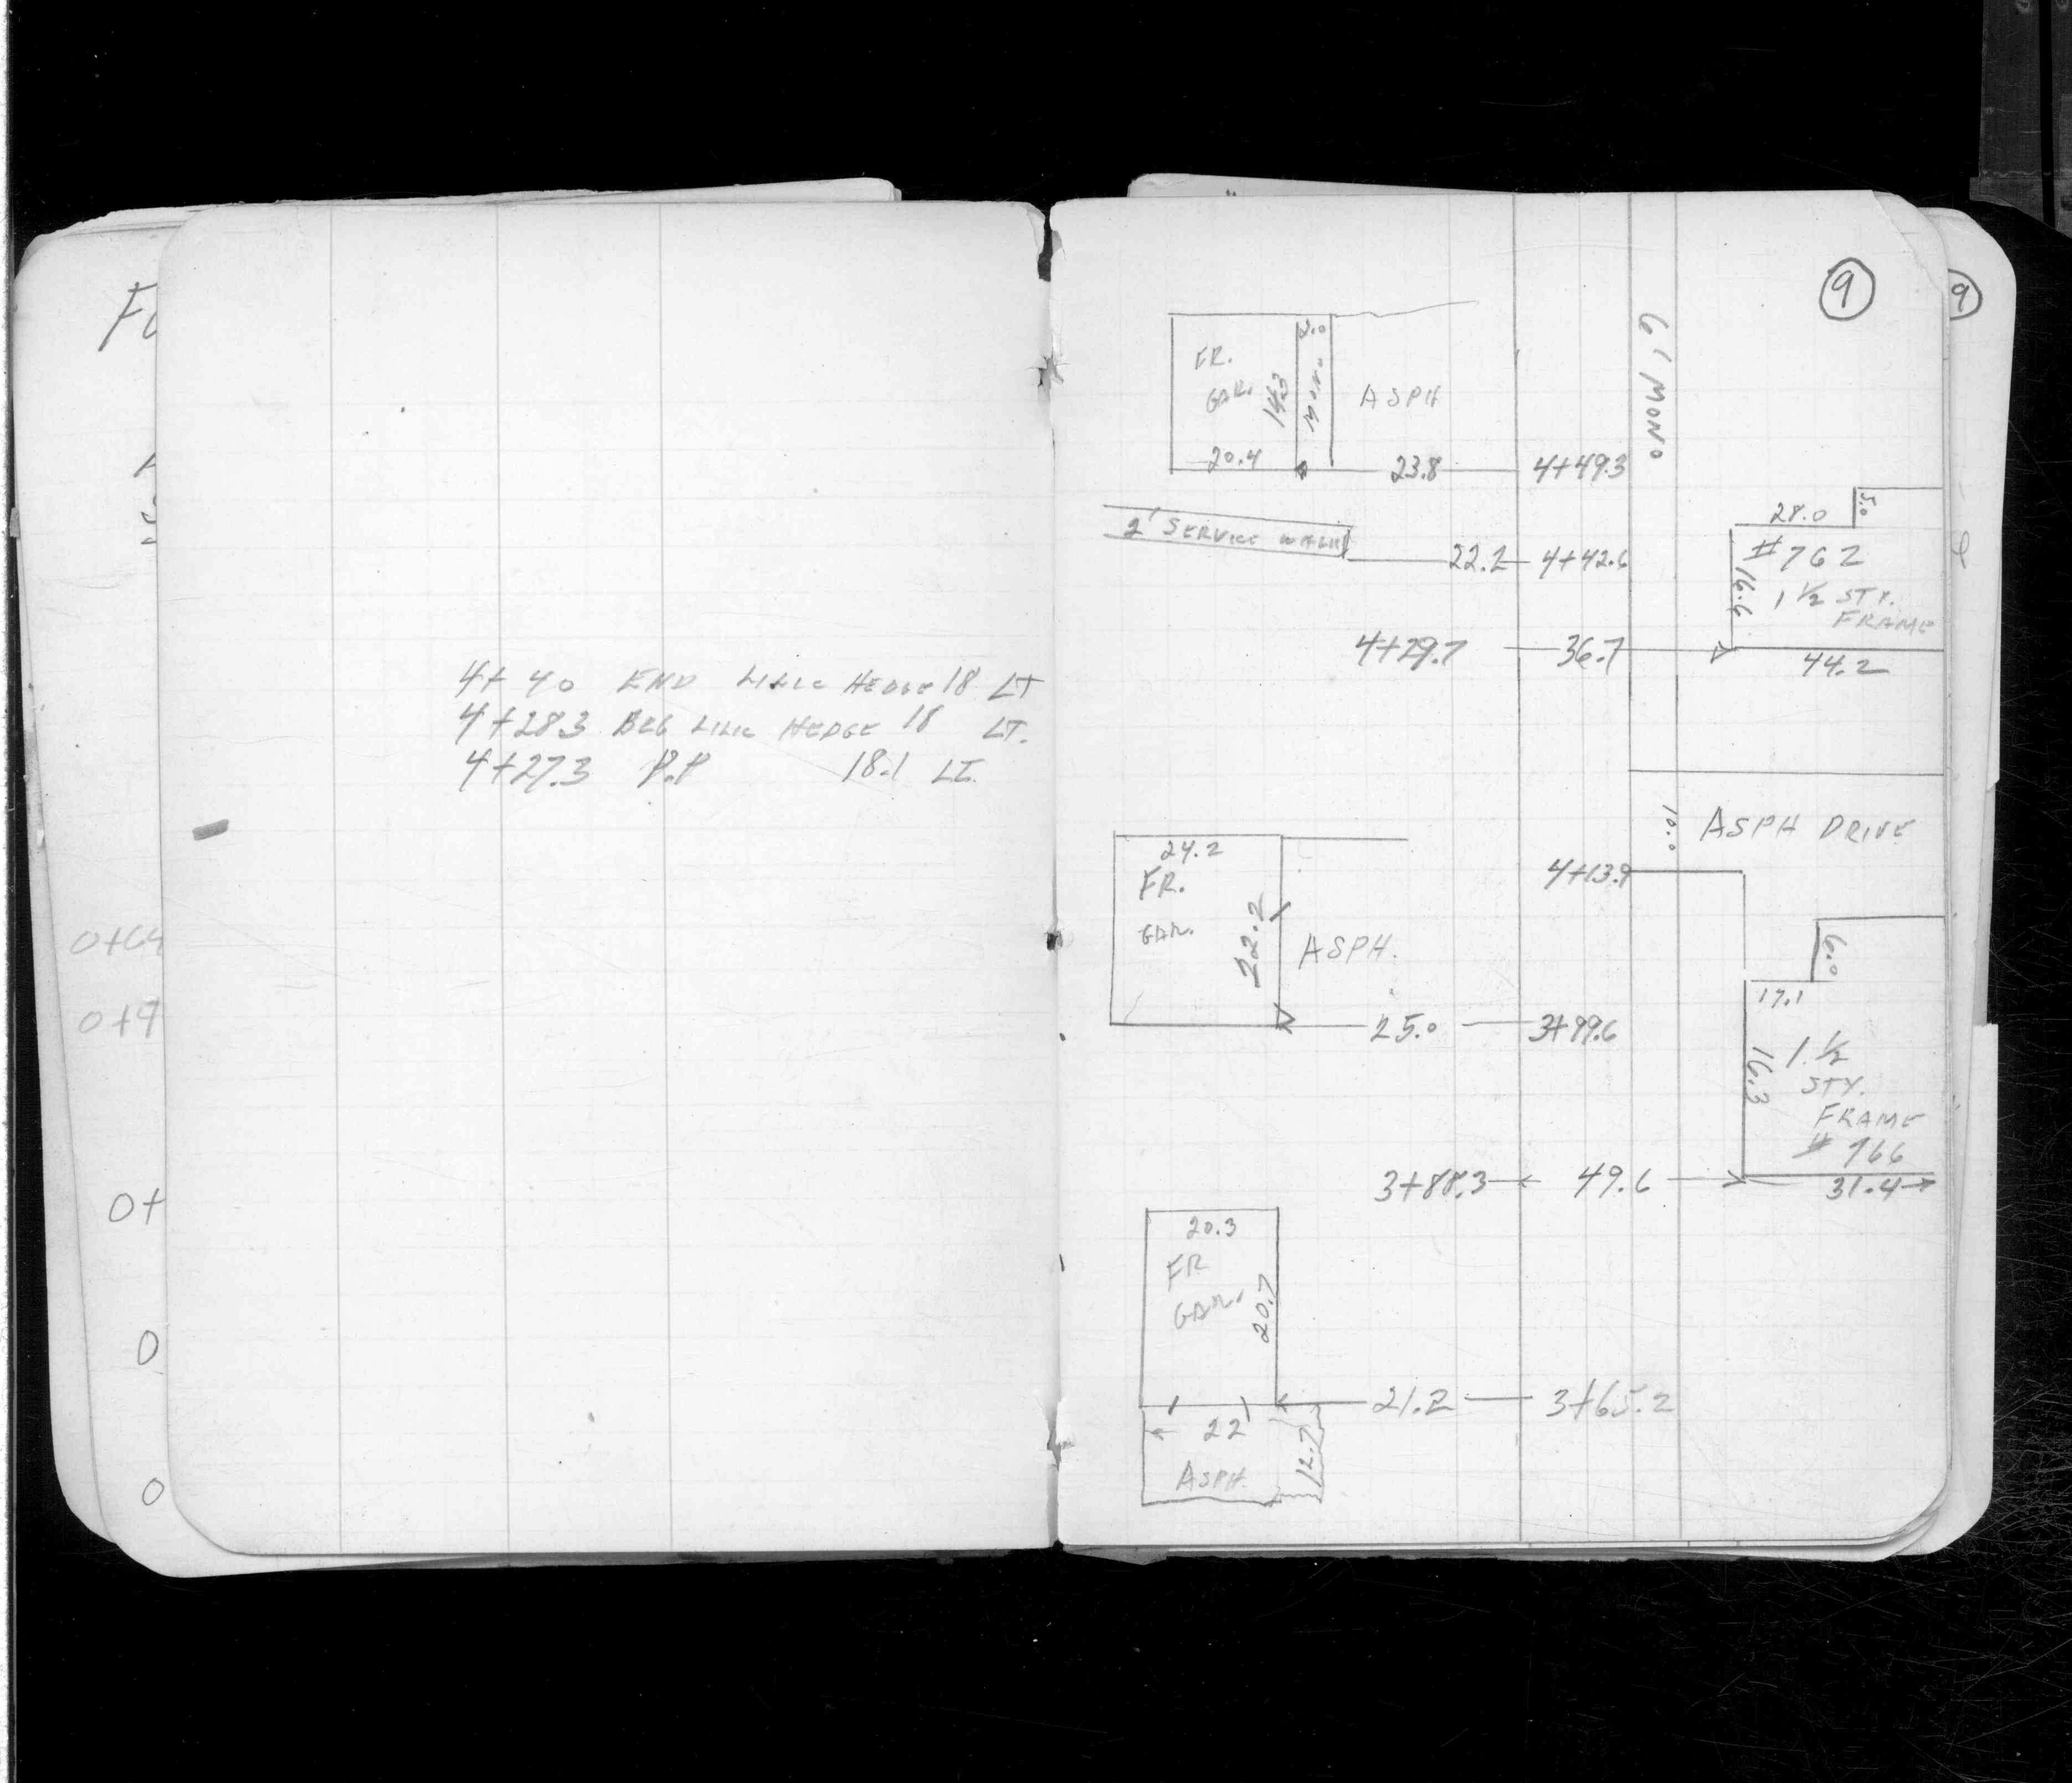 4+40 END LILIC HEDGE 18 LT
4+28.3 BEG LILIC HEDGE 18 LT.
4+27.3 P.P 18.1 LT.
0+64
0+9
0+
0
0
9
9
6' MONO
FR.
GAR.
14.3
2.0
MONO
ASPH
20.4
23.8
4+49.3
2' SERVICE WALK
22.2
4+42.6
28.0
5.0
#762
16.6
1 1/2 STY.
FRAME
4+29.7
36.7
44.2
10.0
ASPH DRIVE
24.2
FR.
GAR.
22.2
ASPH.
4+13.9
25.0
3+99.6
6.0
17.1
16.3
1 1/2
STY.
FRAME
# 766
3+88.3
49.6
31.4
20.3
FR
GAR.
20.7
21.2
3+65.2
22
12.7
ASPH.